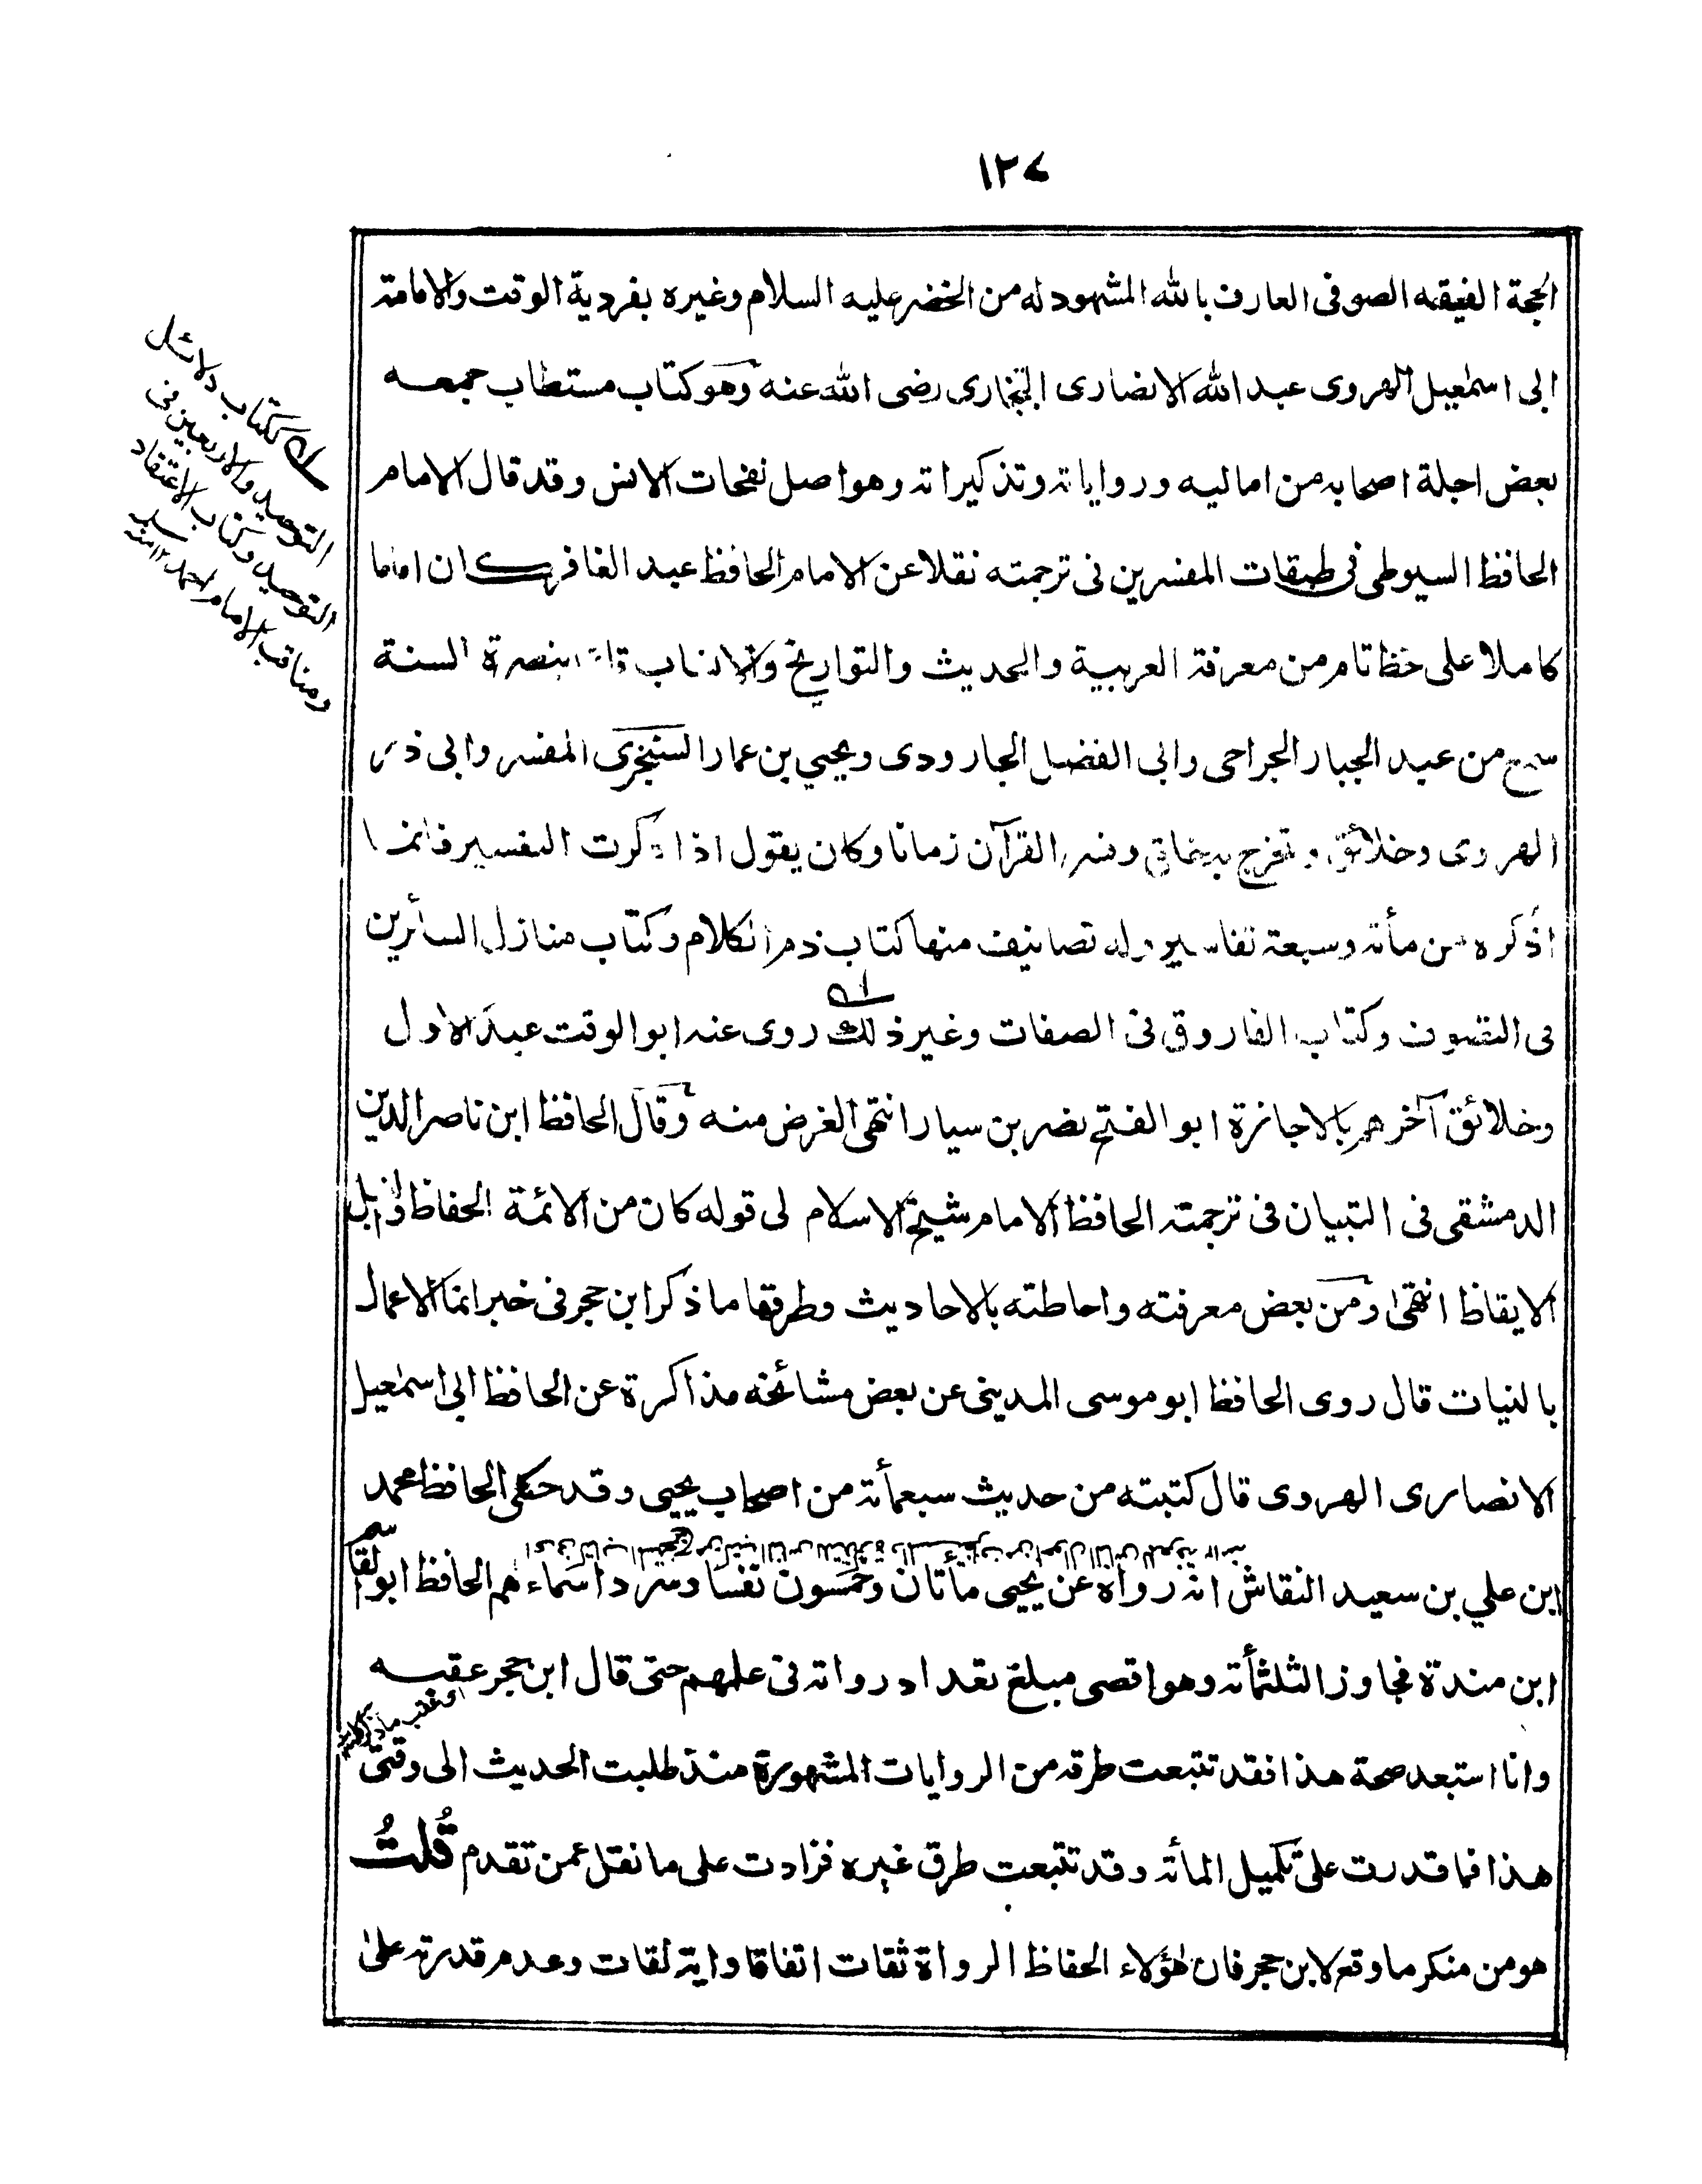 ١٢٧
الحجة الفقيه الصوفى العارف بالله المشهود له من الخضر عليه السلام وغيره بفردية الوقت والامامة
ابى اسمٰعيل الهروى عبد الله الانصارى رضى الله عنه وهو كتاب مستطاب جمعه
بعض اجلة اصحابه من اماليه ورواياته وتذكيراته وهو اصل نفحات الانس وقد قال الامام
الحافظ السيوطى فى طبقات المفسرين فى ترجمته نقلا عن الامام الحافظ عبد الغافر كان اماما
كاملا على حظ تام من معرفة العربية والحديث والتواريخ والانساب بنصرة السنة
سمع من عبد الجبار الجراحى وابى الفضل الجارودى ويحيي بن عمار السنجزى المفسر وابى ذر
الهروى وخلائق وتخرج به وفسر القرآن زمانا وكان يقول اذا ذكرت التفسير فانما
اذكره من مأته وسبعة تفاسير وله تصانيف منها كتاب ذم الكلام وكتاب منازل السائرين
فى التصوف وكتاب الفاروق فى الصفات وغير ذلك روى عنه ابو الوقت عبد الاول
وخلائق آخرهم بالاجازة ابو الفتح نصر بن سيار انتهى الغرض منه وقال الحافظ ابن ناصر الدين
الدمشقى فى التبيان فى ترجمته الحافظ الامام شيخ الاسلام لى قوله كان من الائمة الحفاظ
الايقاظ انتهىٰ ومن بعض معرفته واحاطته بالاحاديث وطرقها ما ذكر ابن حجر فى خبر انما الاعمال
بالنيات قال روى الحافظ ابو موسى المدينى عن بعض مشائخه مذاكرة عن الحافظ ابى اسمٰعيل
الانصارى الهروى قال كتبته من حديث سبعمأته من اصحاب يحيى وقد حكى الحافظ محمد
ابن علي بن سعيد النقاش انه رواه عن يحيى مأتان وخمسون نفسا وسرد اسماءهم الحافظ ابو القاسم
ابن مندة فجاوز الثلثمأته وهو اقصى مبلغ تعداد رواته فى علمهم حتى قال ابن حجر عقبه
وانا استبعد صحة هذا فقد تتبعت طرقه من الروايات المشهورة منذ طلبت الحديث الى وقتى
هذا فما قدرت على تكميل المأته وقد تتبعت طرق غيره فزادت على ما نقل عمن تقدم قُلتُ
هو من منكر ما وقع لابن حجر فان هٰؤلاء الحفاظ الرواة ثقات اتفاقا واية لقات وعدم قدرته علىٰ
ككتاب دلائل
التوحيد والاربعين فى
التوحيد وكتاب الاعتقاد
ومناقب الامام احمد ١٢ منه